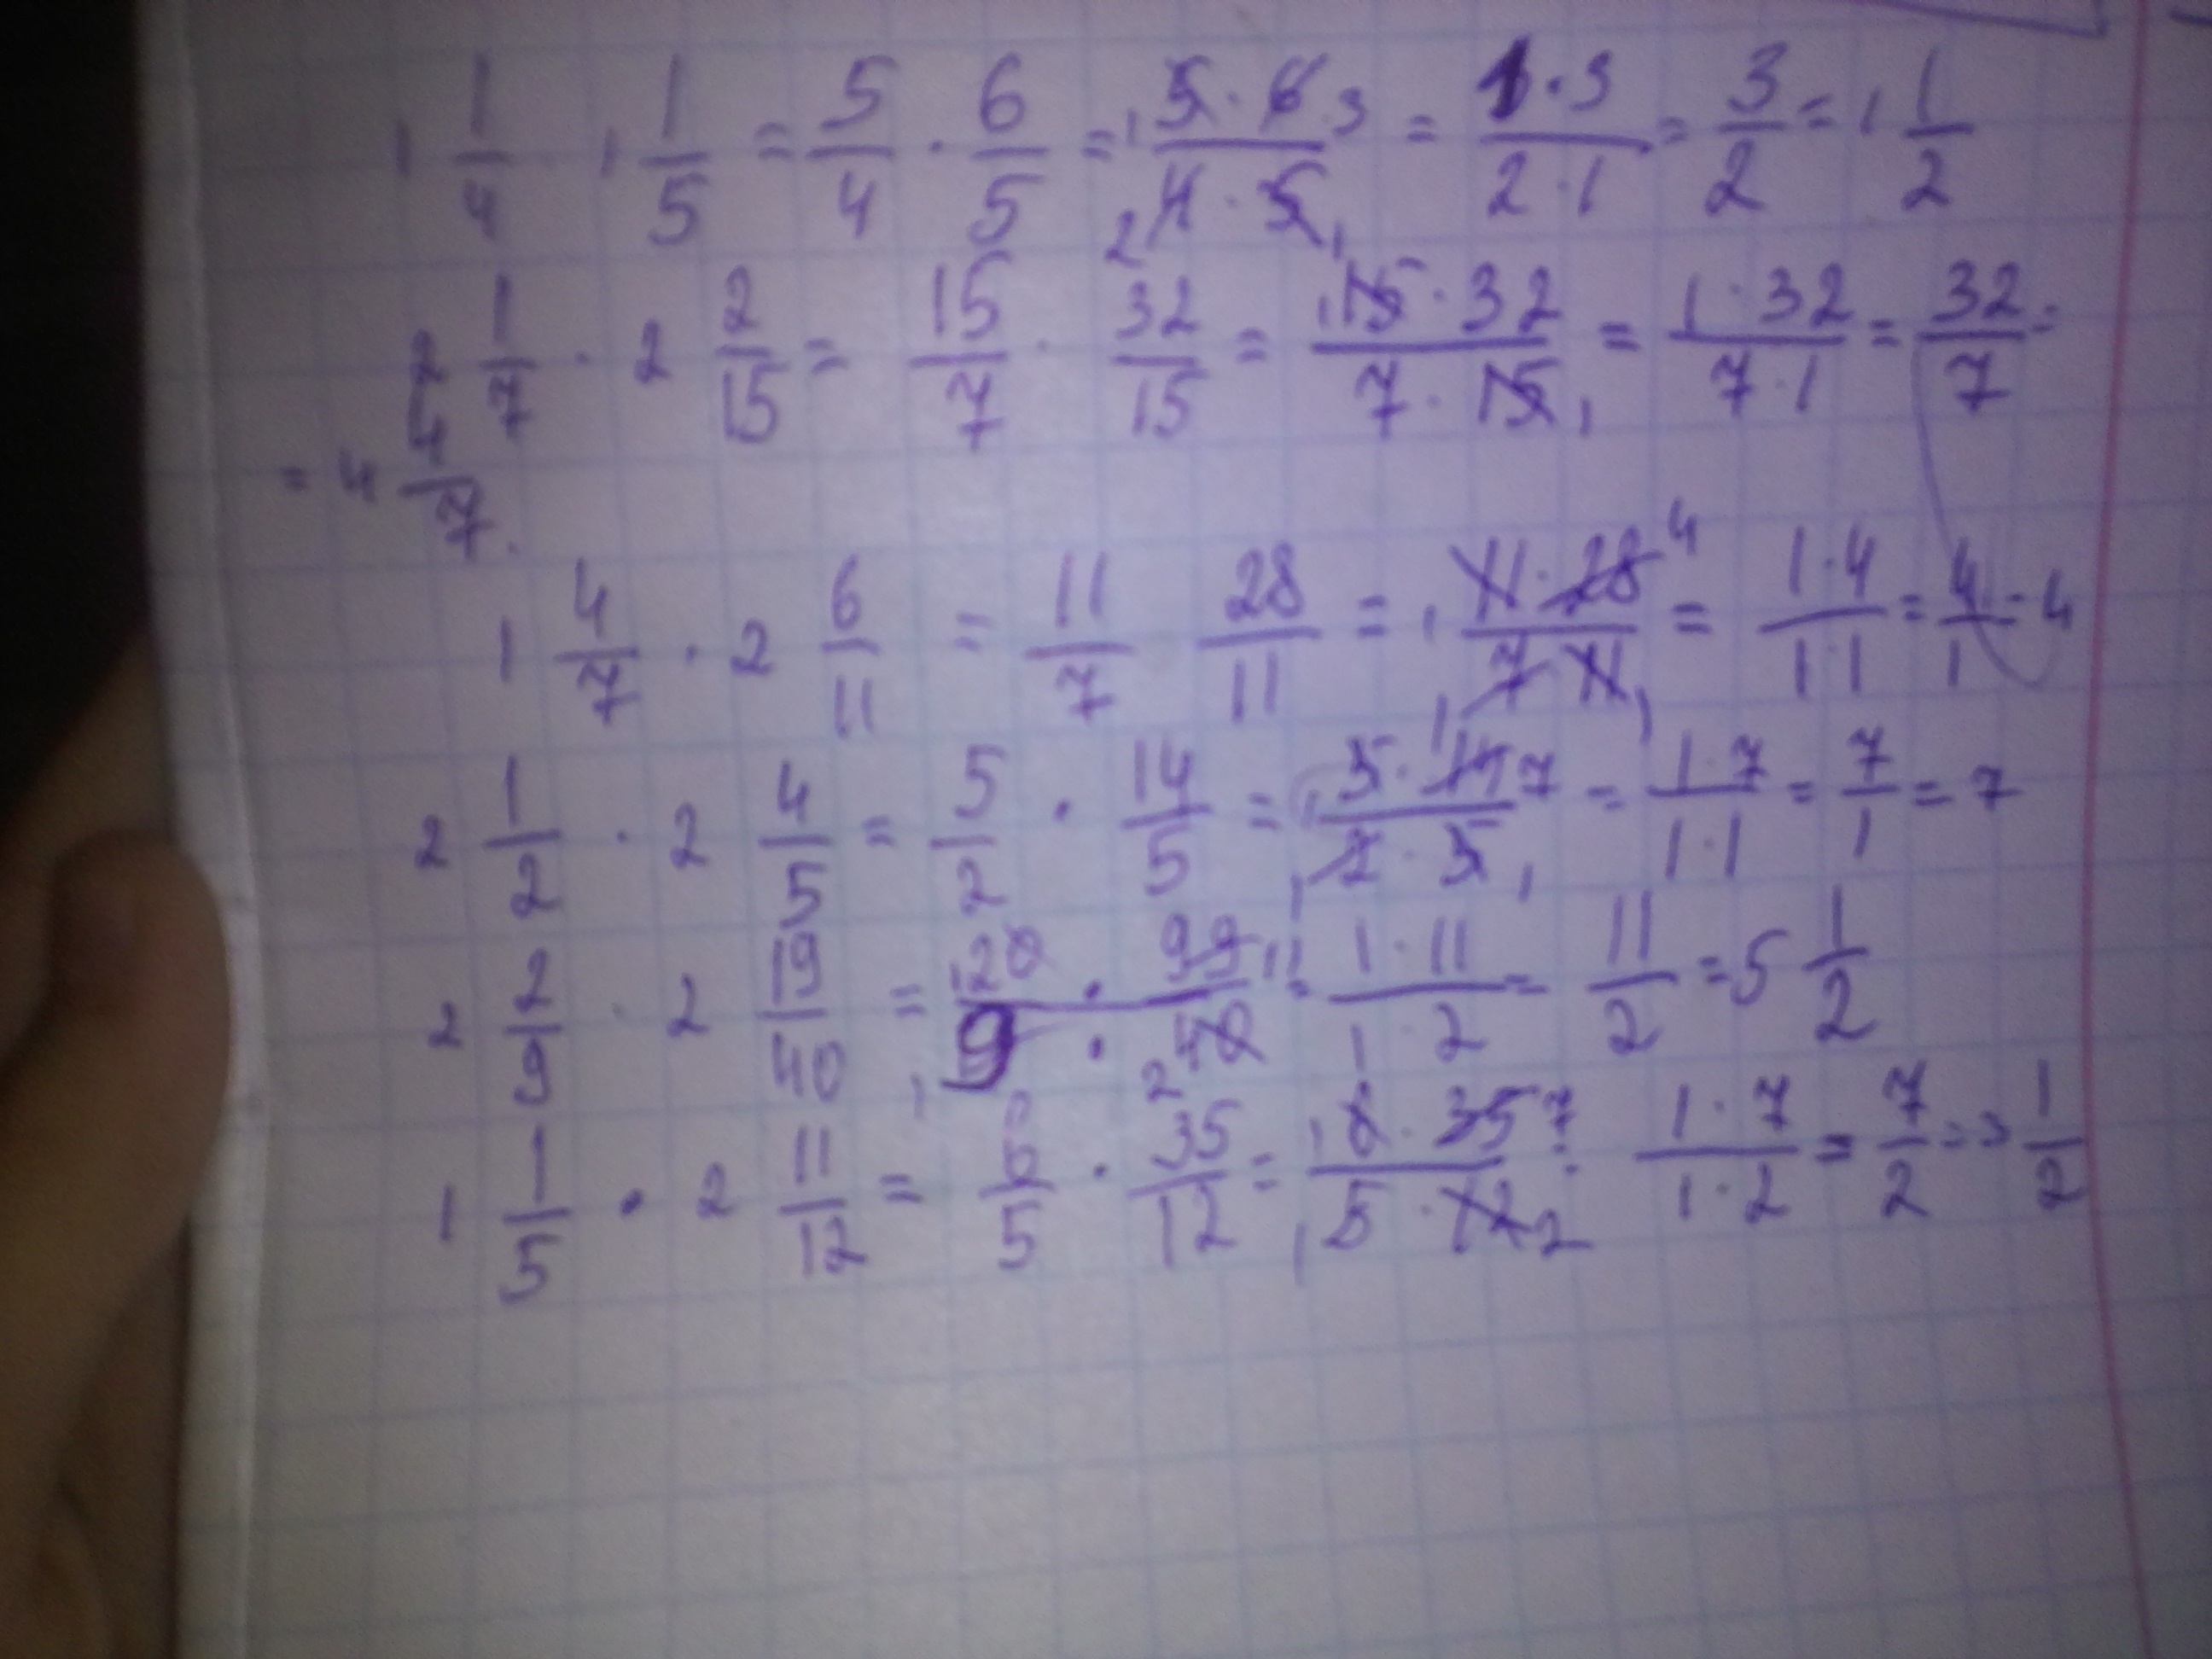 1 1/4 · 1 1/5 = 5/4 · 6/5 = 1 5·6 3 / 2 4·5 1 = 1·3/2·1 = 3/2 = 1 1/2
2 1/7 · 2 2/15 = 15/7 · 32/15 = 1 15·32 / 7·15 1 = 1·32/7·1 = 32/7 =
= 4 4/7.
1 4/7 · 2 6/11 = 11/7 28/11 = 1 11·28 4 / 1 7 11 1 = 1·4/1·1 = 4/1 = 4
2 1/2 · 2 4/5 = 5/2 · 14/5 = 1 5·14 7 / 1 2·5 1 = 1·7/1·1 = 7/1 = 7
2 2/9 · 2 19/40 = 1 20 · 99 11 / 1 9 · 2 40 = 1·11/1·2 = 11/2 = 5 1/2
1 1/5 · 2 11/12 = 6/5 · 35/12 = 1 6·35 7 / 1 5·12 2 = 1·7/1·2 = 7/2 = 3 1/2